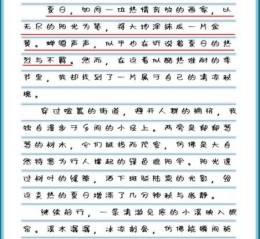 夏日，如同一位热情奔放的画家，以
无尽的阳光为笔，将大地涂抹成一片金
黄。蝉鸣声声，似乎也在诉说着夏日的热
烈与不羁。然而，在这看似酷热难耐的季
节里，我却找到了一片属于自己的清凉秘
境。
穿过喧嚣的街道，避开人群的拥挤，我
独自漫步于乡间的小径上。两旁是郁郁葱
葱的树木，它们枝繁叶茂，仿佛是大自
然特意为行人撑起的绿色遮阳伞。阳光透
过树叶的缝隙，洒下斑驳陆离的光影，给
这炎热的夏日增添了几分神秘与幽静。
继续前行，一条清澈见底的小溪映入眼
帘。溪水潺潺，冰凉刺骨，仿佛能瞬间